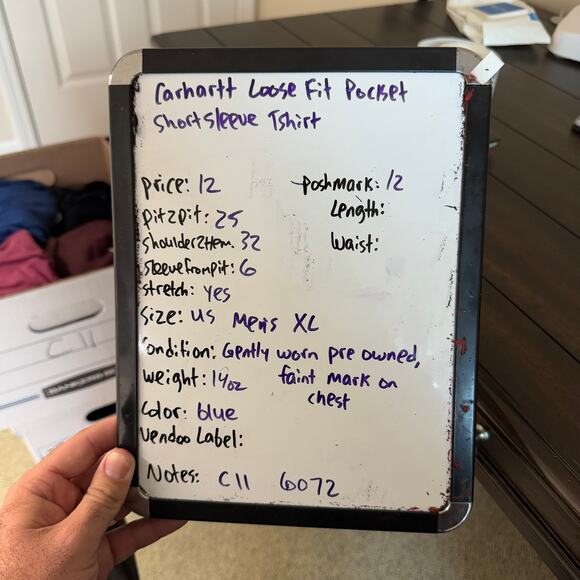 Carhartt Loose Fit Pocket
Short sleeve Tshirt
Price: 12
Poshmark: 12
Pit2pit: 25
Length:
Shoulder2Hem: 32
Waist:
Sleevefrompit: 6
Stretch: yes
Size: US Men's XL
Condition: Gently worn pre owned,
faint mark on
chest
Weight: 14oz
Color: blue
Vendoo Label:
Notes: C11 6072
C11